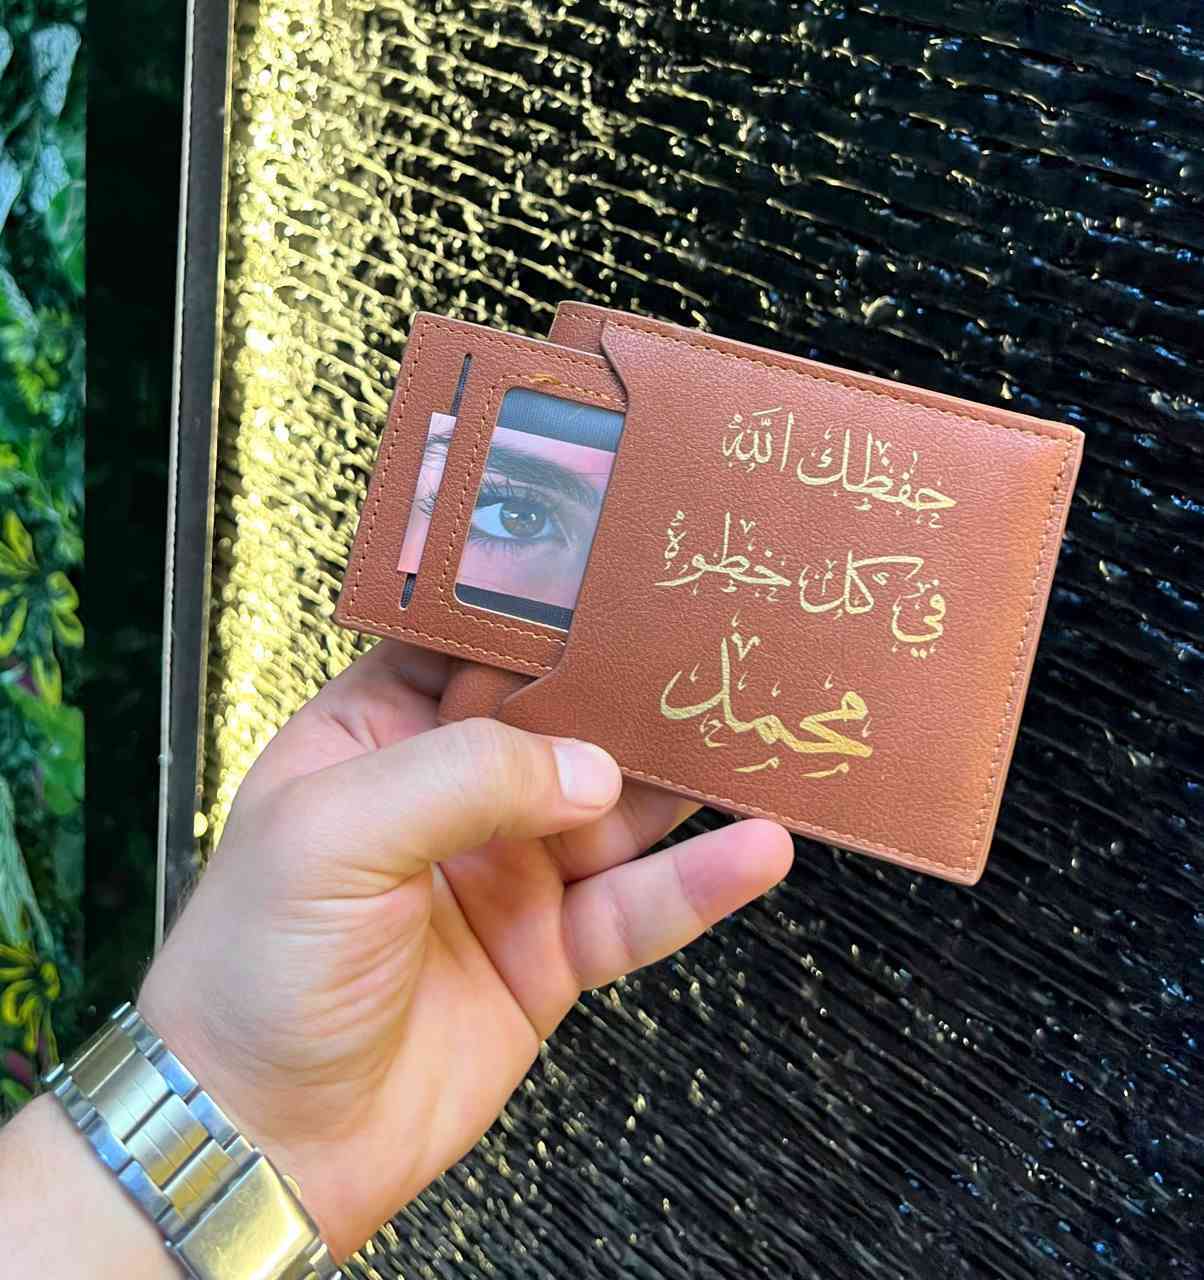 حفظك الله
في كل خطوة
محمد